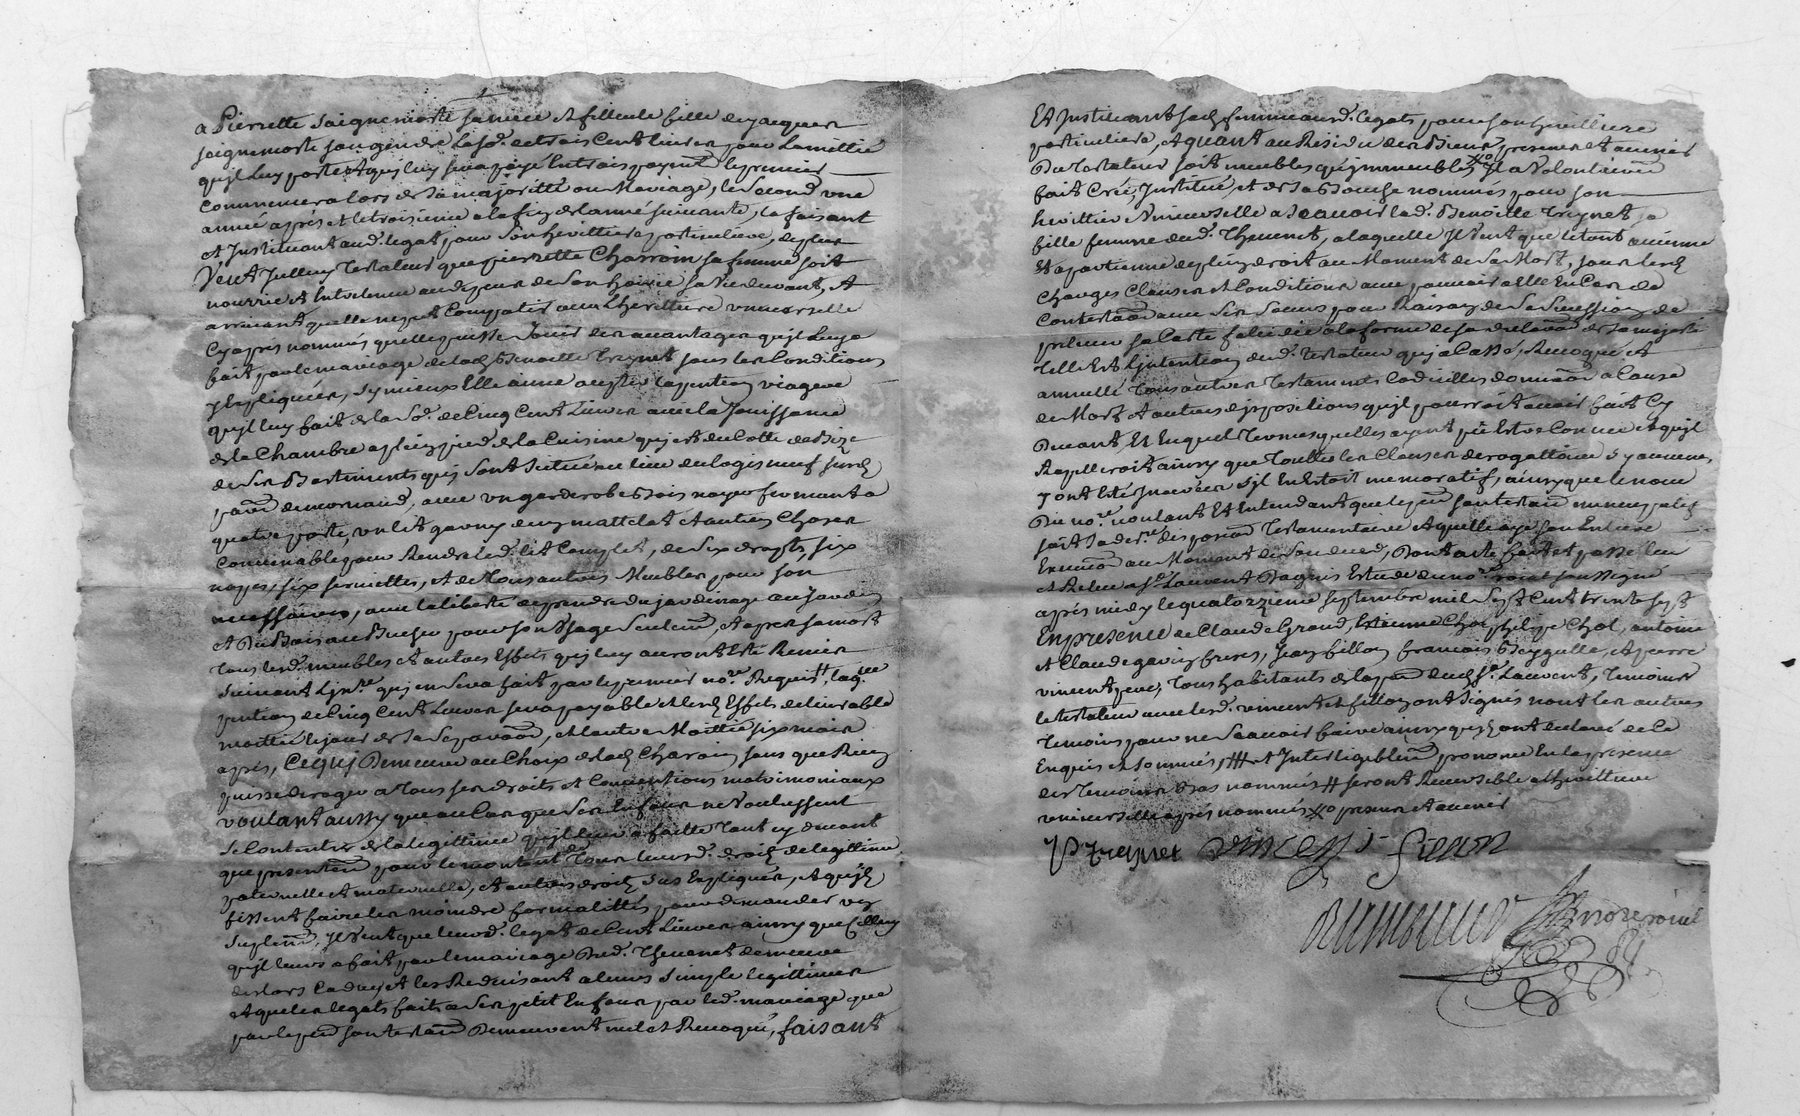 a Pierrette Saignemorte sa niece et filleule fille de Jacques
Saignemorte son gendre la sᵉ. de trois Cent livres pour Lamittié
quil luy porte et qui luy sera payé En trois payemᵗ le premier
Commencera lors de sa majoritté ou Mariage, le second une
année après et le troisieme a la fin de lanné suivante, la faisant
et Instituant aud. legat pour son herittiere particuliere, de plus
Veut Icelluy Testateur que pierrette Charroin sa femme soit
nourrie et Entretenue au depens de son hoirie sa Vie durant, Et
arrivant quelle ne put Compatir avec Lherittiere universelle
Cy après nommée quelle puisse Jouir des avantages quil luy a
fait par le mariage de lad. Benoitte Treynet sous les Conditions
y Expliquées, sy mieux Elle aime accepter la pention viagere
quil luy fait de la soᵉ. de Cinq Cent Livres avec la Jouissance
de la Chambre a plein pied de la Cuisine qui est du Cotté de Bize
de ses Bastiments qui sont situé au lieu du logis neuf susd.
parᵉ de mornand, avec un garderobe Bois noyer fermant a
quatre porte, un lit garny dun mattelat et autres Choses
Convenable pour Rendre led. lit Complet, de six draps, six
napes, six serviettes, et de Tous autres Meubles pour son
neccessaire, avec la liberté de prendre du jardinage au Jardin
et Du Bois au Bucher pour son Usage seulemᵗ, Et apres sa mort
tous lesd. meubles et autres Effets qui luy auront Esté Remis
suivant Linʳᵉ qui en sera fait par le premier noʳᵉ Requis #, laqˡˡᵉ
pention de Cinq Cent Livres sera payable et lesd. Effets delivrable
moittié le jour de sa separaõn, et lautre Moittié six mois
après, Ce qui Demeure au Choix de lad. Charoin sans que Rien
puisse deroger a tous ses droits et Conventions matrimoniaux
voulant aussy que au Cas que ses Enfans ne Voulussent
se Contenter de la legittime quil leur a faitte tant cy devant
que presentemᵗ pour le montant de Tous leursd. droits de legittime
paternelle et maternelle, et autres droits sus Expliqués, et quils
fissent faire les moindre formalittés pour demander un
suplemᵗ, Il Veut que leursd. legat de Cent Livres ainsy que Celluy
quil leurs a fait par le mariage Dud. Thevenet demeure
deslors Caduq et les Reduisant a leurs simple legittimes
et que les legats faits a ses petit Enfans par led. mariage que
par le pnᵗ son testamᵗ Demeurent nul et Revoqué, faisant
Et Instituant sesd. femme ausd. legats pour son herittiere
particuliere, et quant au Residu des Biens presents et avenir
Du testateur soit meubles quimmeubles Xº Il a Volontairemᵗ
fait Créé, Institué, et de sa Bouche nommés pour son
herittiere Universelle a scavoir lad. Benoitte Treynet sa
fille femme dud. Thevenet, a laquelle Il Veut que le tout avienne
Et apartienne de plein droit au Moment de sa Mort, sous lesd.
Charges Clauses et Conditions avec pouvoir a Elle En Cas de
Contestaõn avec ses sœurs pour Raison de sa sucession de
prelever sa Carte falcidie a la forme de la declaraõn de sa majesté
Telle Est Lintention dud. testateur qui a Cassé, Revoqué et
annullé Tous autres Testaments Codicilles donnaõn a Cause
de Mort et autres dispositions quil pourroit avoir fait Cy
Devant Et En quel termes quelles ayent pû Estre Conçue et quil
Rapelleroit ainsy que Touttes les Clauses derogattoire sy aucunes
y ont Esté Inserées sil En Estoit memoratif, ainsy que le nom
Du noʳᵉ voulant Et Entendant que le pnᵗ son testamᵗ nuncupatif
soit sa derʳᵉ disposiõn Testamentaire et quelle aye son Entiere
Execuõn au Moment de son deced, Dont acte fait et passé leu
et Releu a sᵗ Laurent Dagnis Estude du noʳᵉ roial soussigné
après midy le quatorzieme septembre mil Sept Cent trente sept
En presence de Claude Grand, Estienne Chol, philipe Chol, antoine
et Claude gavin freres, Jean fillon francois Peyzelle, et pierre
vincent, Tous habitants de la parᵉ dud. sᵗ Laurent, Temoins
le testateur avec lesd. vincent et fillon ont signés non les autres
temoins pour ne scavoir faire ainsy quils ont declaré de Ce
Enquis et sommés, ## et Intelligiblemᵗ prononcé En la presence
des temoins Bas nommés # seront Reversible a Lherittiere
universelle après nommée Xº present et avenir
P treynet vincent fillon
noʳᵉ roial